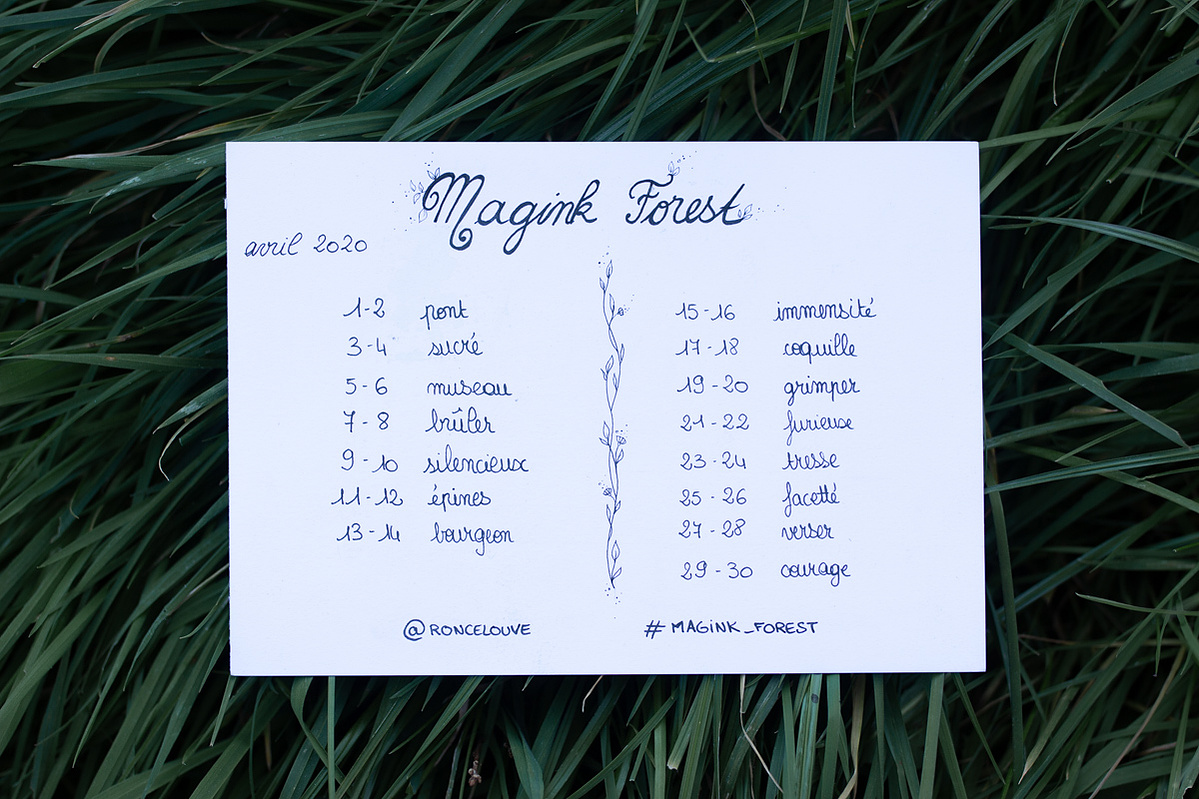 Magink Forest
avril 2020
1-2 pont
3-4 sucré
5-6 museau
7-8 brûler
9-10 silencieux
11-12 épines
13-14 bourgeon
15-16 immensité
17-18 coquille
19-20 grimper
21-22 furieuse
23-24 tresse
25-26 facetté
27-28 verser
29-30 courage
@RONCELOUVE
#MAGINK_FOREST